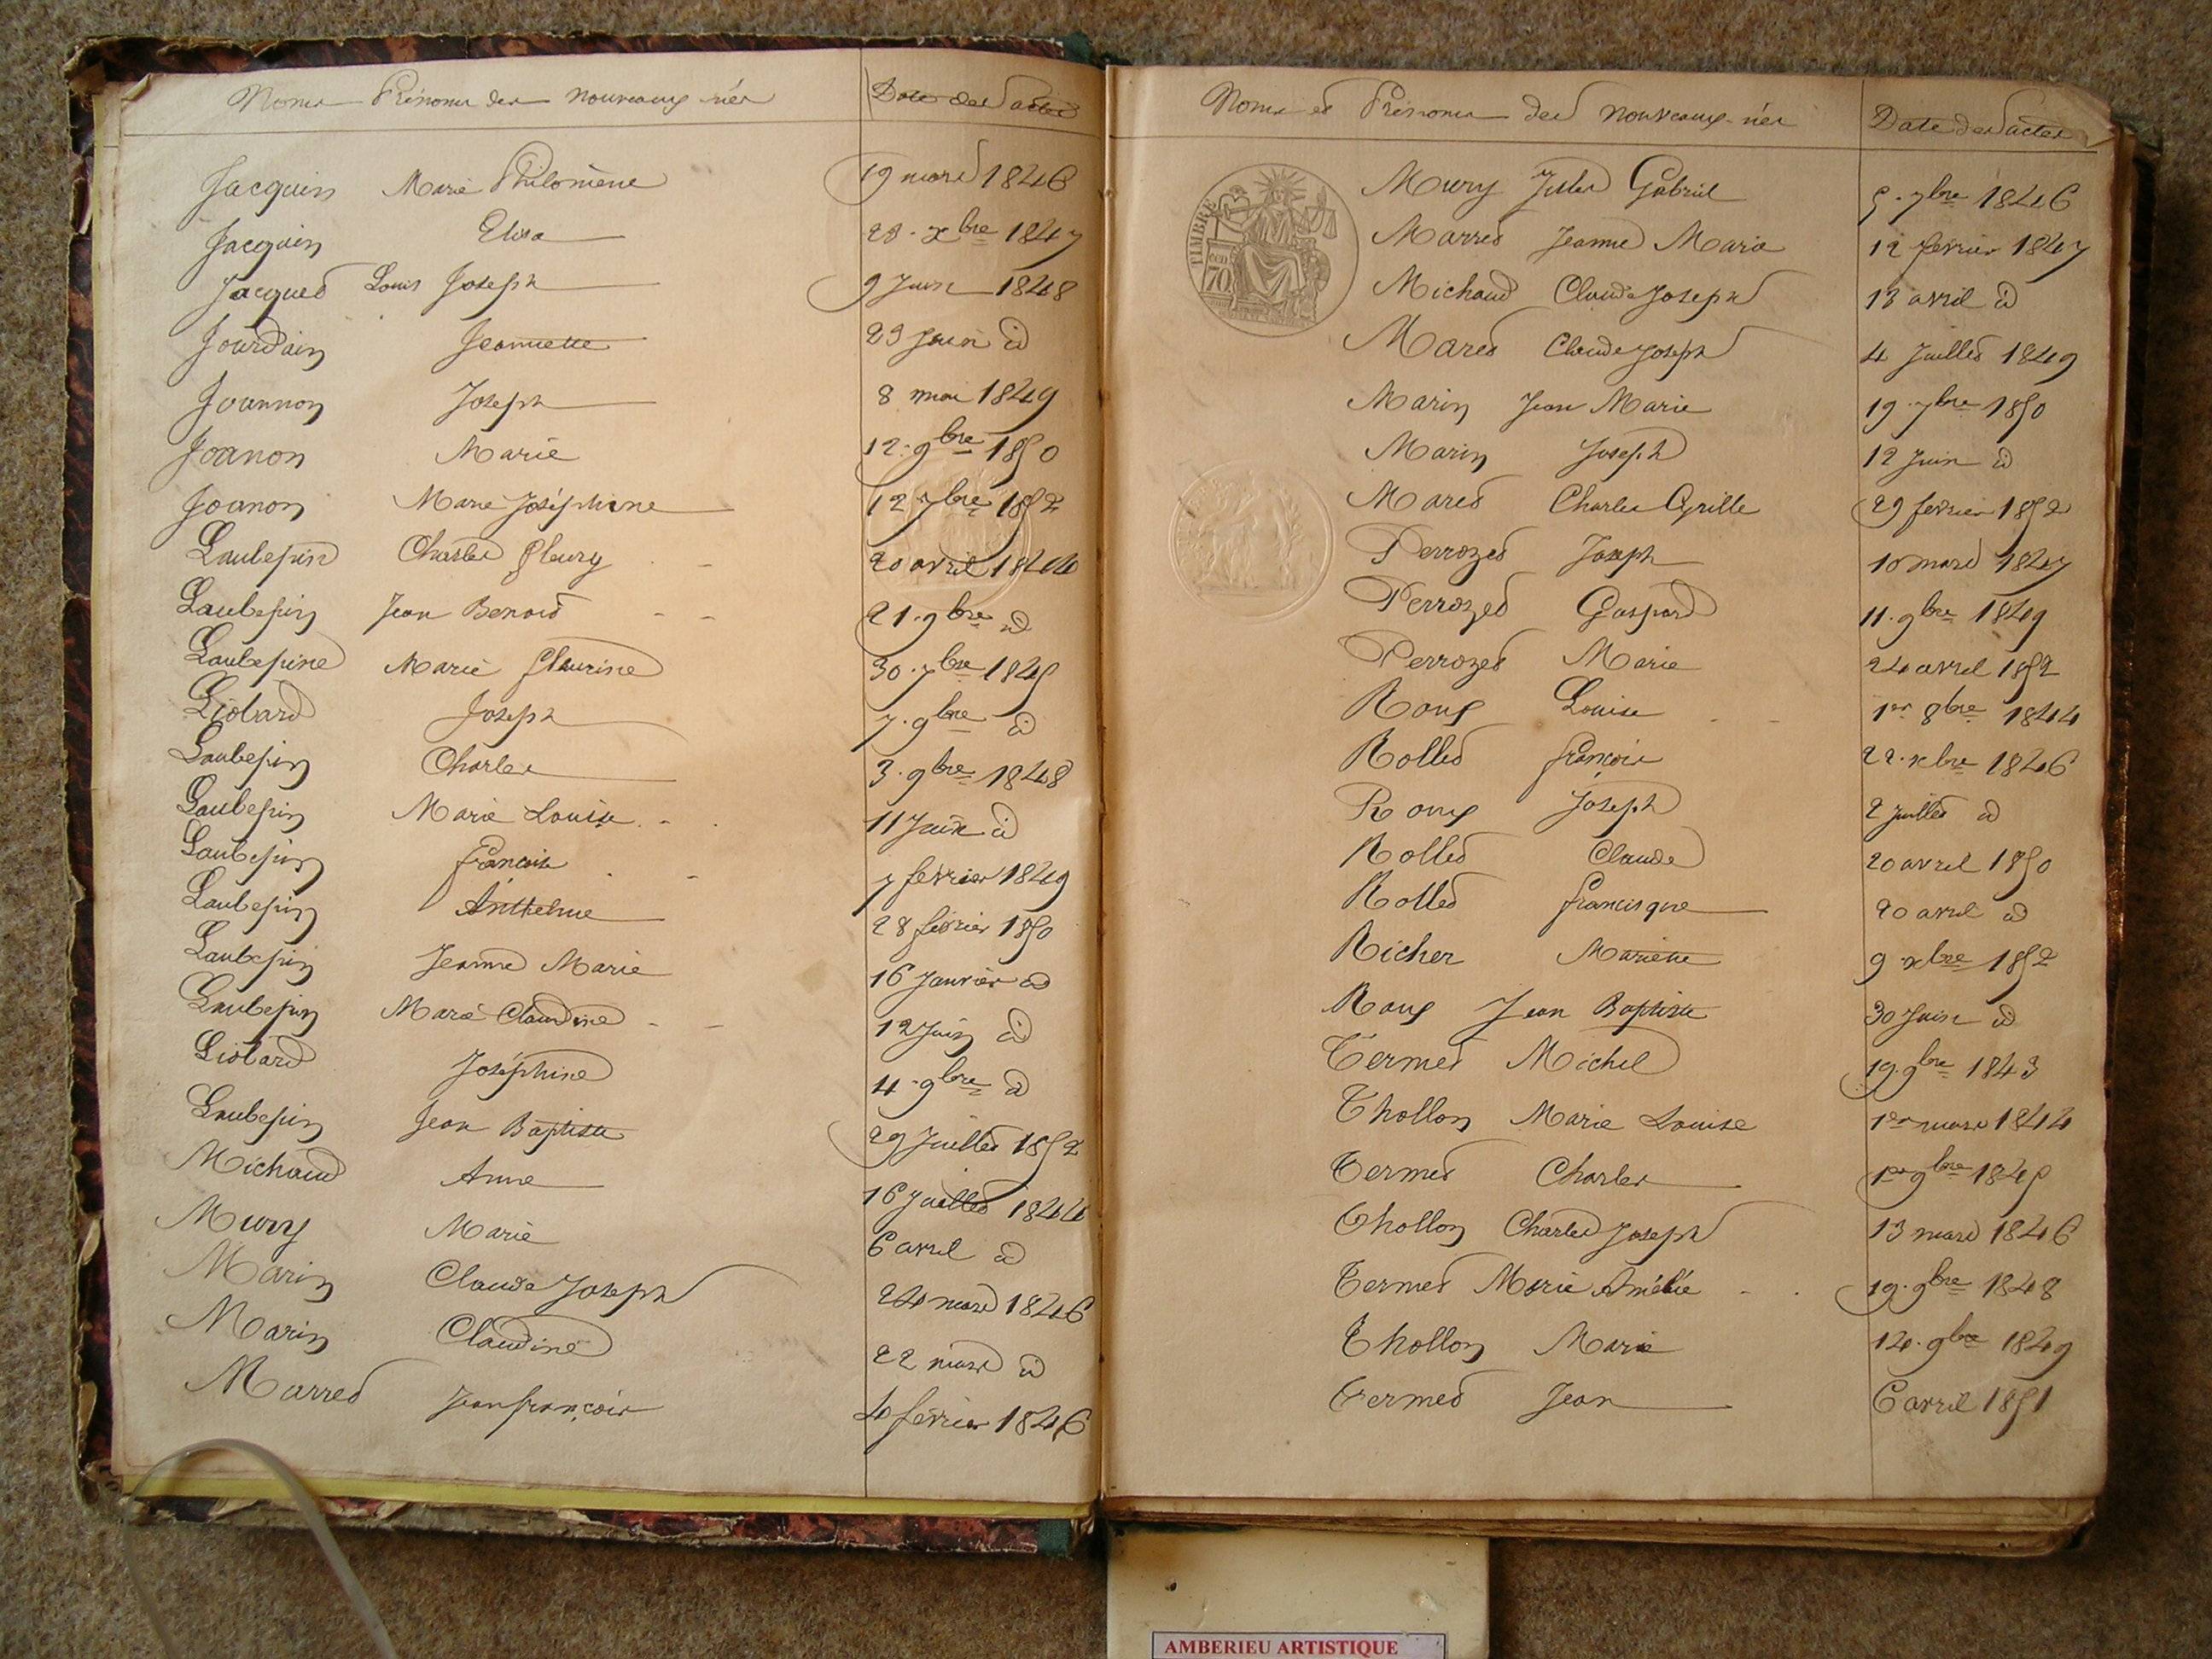 Noms Prénoms des nouveaux-nés Date des actes
Jacquin Marie Philomène 19 mars 1846
Jacquin Elisa 28 xbre 1847
Jacques Louis Joseph 9 Juin 1848
Jourdain Jeannette 29 Juin id
Joannon Joseph 8 mai 1849
Joanon Marie 12 9bre 1850
Joanon Marie Joséphine 12 7bre 1852
Laubepin Charles fleury 20 avril 1844
Laubepin Jean Benoit 21 9bre id
Laubepine Marie fleurine 30 7bre 1845
Liobard Joseph 7 9bre id
Laubepin Charles 3 9bre 1848
Laubepin Marie Louise 11 Juin id
Laubepin francoise 7 février 1849
Laubepin Anthelme 28 février 1850
Laubepin Jeanne Marie 16 Janvier id
Laubepin Marie Claudine 12 Juin id
Liobard Joséphine 4 9bre id
Laubepin Jean Baptiste 29 Juillet 1852
Michaud Anne 16 Juillet 1844
Mury Marie 6 avril id
Marin Claude Joseph 24 mars 1846
Marin Claudine 22 mars id
Marret Jean françois 4 février 1846
Noms et Prénoms des nouveaux-nés Date des actes
TIMBRE
70
Mury Jules Gabriel 5 7bre 1846
Marret Jeanne Marie 12 février 1847
Michaud Claude Joseph 13 avril id
Maret Claude Joseph 4 Juillet 1849
Marin Jean Marie 19 7bre 1850
Marin Joseph 12 Juin id
Maret Charles Cyrille 29 février 1852
Perrozet Joseph 10 mars 1847
Perrozet Gaspard 11 9bre 1849
Perrozet Marie 24 avril 1852
Roux Louise 1er 8bre 1844
Rollet françois 22 xbre 1846
Roux Joseph 2 Juillet id
Rollet Claude 20 avril 1850
Rollet francisque 20 avril id
Richer Mariette 9 xbre 1852
Roux Jean Baptiste 30 Juin id
Termet Michel 19 9bre 1843
Thollon Marie Louise 1er mars 1844
Termet Charles 1er 9bre 1845
Thollon Charles Joseph 13 mars 1846
Termet Marie Amélie 19 9bre 1848
Thollon Marie 14 9bre 1849
Termet Jean 6 avril 1851
AMBERIEU ARTISTIQUE